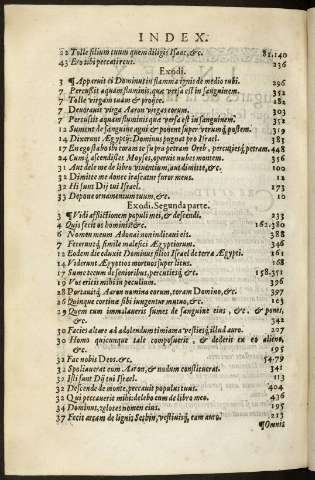 INDEX.
22 Tolle filium tuum quem diligis Isaac, &c. 82.140
43 Ero tibi peccati reus. 236
Exodi.
3 ¶ Apparuit ei Dominus in flamma ignis de medio rubi. 296
7 Percussit aquam fluminis, quæ versa est in sanguinem. 352
7 Tolle virgam tuam & projice. 182
7 Devoravit virga Aaron virgas eorum. 303
7 Percussit aquam fluminis quæ versa est in sanguinem. 352
12 Sument de sanguine agni & ponent super utrumq; postem. 319
14 Dixerunt Ægyptij: Dominus pugnat pro Israel. 385
17 En ego stabo ibi coram te supra petram Oreb, percutiesq; petram. 448
24 Cumq; ascendisset Moyses, operuit nubes montem. 356
31 Aut dele me de libro viventium, aut dimitte, &c. 100
32 Dimitte me donec irascatur furor meus. 12
32 Hi sunt Dij tui Israel. 173
33 Depone ornamentum tuum, &c. 10
Exodi. Segunda parte.
3 ¶ Vidi afflictionem populi mei, & descendi. 233
4 Quis fecit os hominis &c. 162.380
6 Nomen meum Adonai non indicavi eis. 388
7 Feceruntq; simile malefici Ægyptiorum. 346
12 Eodem die eduxit Dominus filios Israel de terra Ægypti. 161
14 Viderunt Ægyptios mortuos super litus. 168
17 Sume tecum de senioribus, percutiesq; &c. 158.351
19 Vos eritis mihi in peculium. 396
28 Portavitq; Aaron numina eorum, toram Domino, &c. 397
26 Quinque cortinæ sibi iungentur mutuo, &c. 103
29 Quem cum immolaveris sumes de sanguine eius, &c. & pones, &c. 342
30 Facies altare ad adolendum timiama vestiesq; illud auro. 207
30 Homo quicunque tale composuerit, & dederit ex eo alieno, &c. 195
32 Fac nobis Deos, &c. 54.79
32 Spoliaverat eum Aaron, & nudum constituerat. 341
32 Isti sunt Dij tui Israel. 113
32 Descende de monte, peccavit populus tuus. 404
32 Qui peccaverit mihi: delebo eum de libro meo. 436
34 Dominus, zelotes nomen eius. 195
37 Fecit arcam de lignis Sethin, vestivitq; eam auro. 213
¶ Omnis